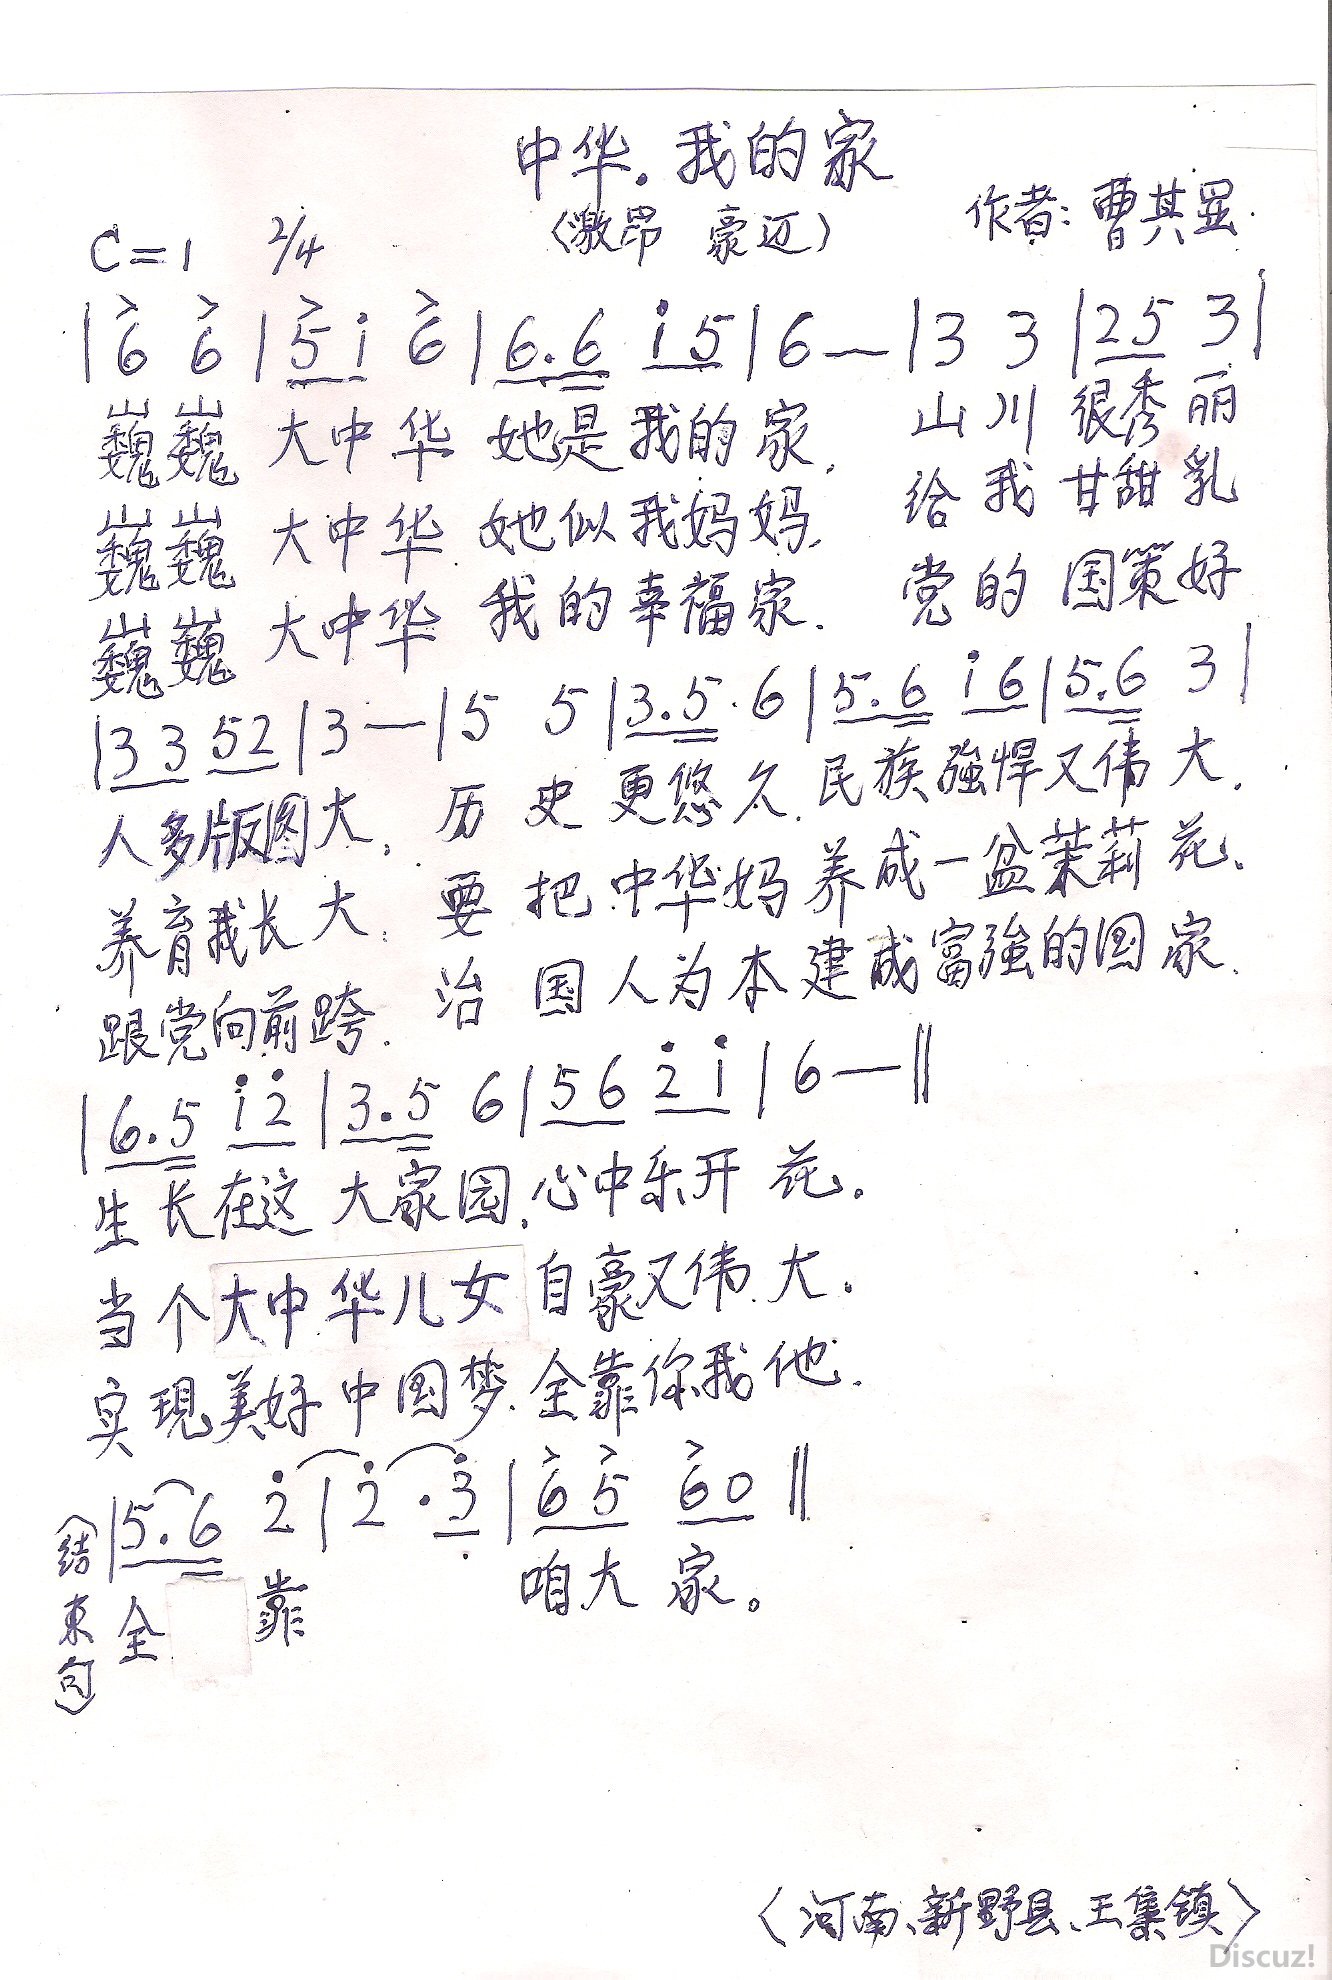 中华.我的家
作者:曹其显.
C=1 2/4 (激昂 豪迈)
|6 6|5 i 6|6.6 i 5|6—|3 3|25 3|
巍巍 大中华 她是我的家, 山川很秀丽
巍巍 大中华 她似我妈妈, 给我甘甜乳
巍巍 大中华 我的幸福家. 党的国策好
|33 52|3—|5 5|3.5.6|5.6 i6|5.6 3|
人多版图大, 历史更悠久.民族強悍又伟大.
养育我长大, 要把中华妈养成一盆茉莉花.
跟党向前跨. 治国人为本建成富強的国家.
|6.5 i2|3.5 6|56 2i|6—‖
生长在这大家园,心中乐开花.
当个大中华儿女自豪又伟大.
实現美好中国梦.全靠你我他.
(结束句)|5.6 2|2.3|65 60‖
全 靠 咱大家。
〈河南、新野县、王集镇〉
Discuz!